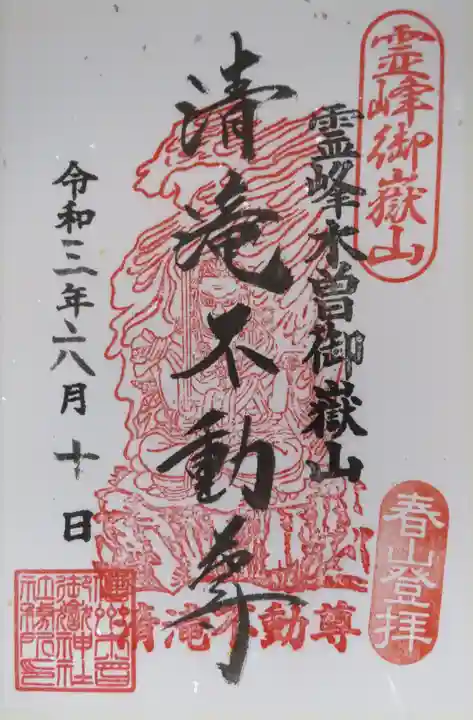 霊峰御嶽山
霊峰木曽御嶽山
春山登拝
清滝不動尊
令和三年六八月十日
清滝不動尊
信州木曽
御嶽神社
社務所印